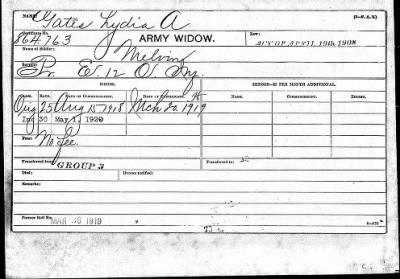 Name: Gates Lydia A (3-U.S.A.)
Certificate No. 864,763 ARMY WIDOW. Law: ACT OF APRIL 19th 1908
Name of Soldier: Melvin
Service: Pr. E. 12 O.
ISSUE. MINOR—$2 PER MONTH ADDITIONAL.
CLASS. RATE. DATE OF COMMENCEMENT. DATE OF CERTIFICATE. NAME. COMMENCEMENT. ENDING.
Aug 25 Aug 15 1918 Mch 20 1919
30 May 1, 1920
Fees: No fee
Transferred from: GROUP 3 Transferred to:
Died: Bureau notified:
Remarks:
Former Roll No. MAR 26 1919